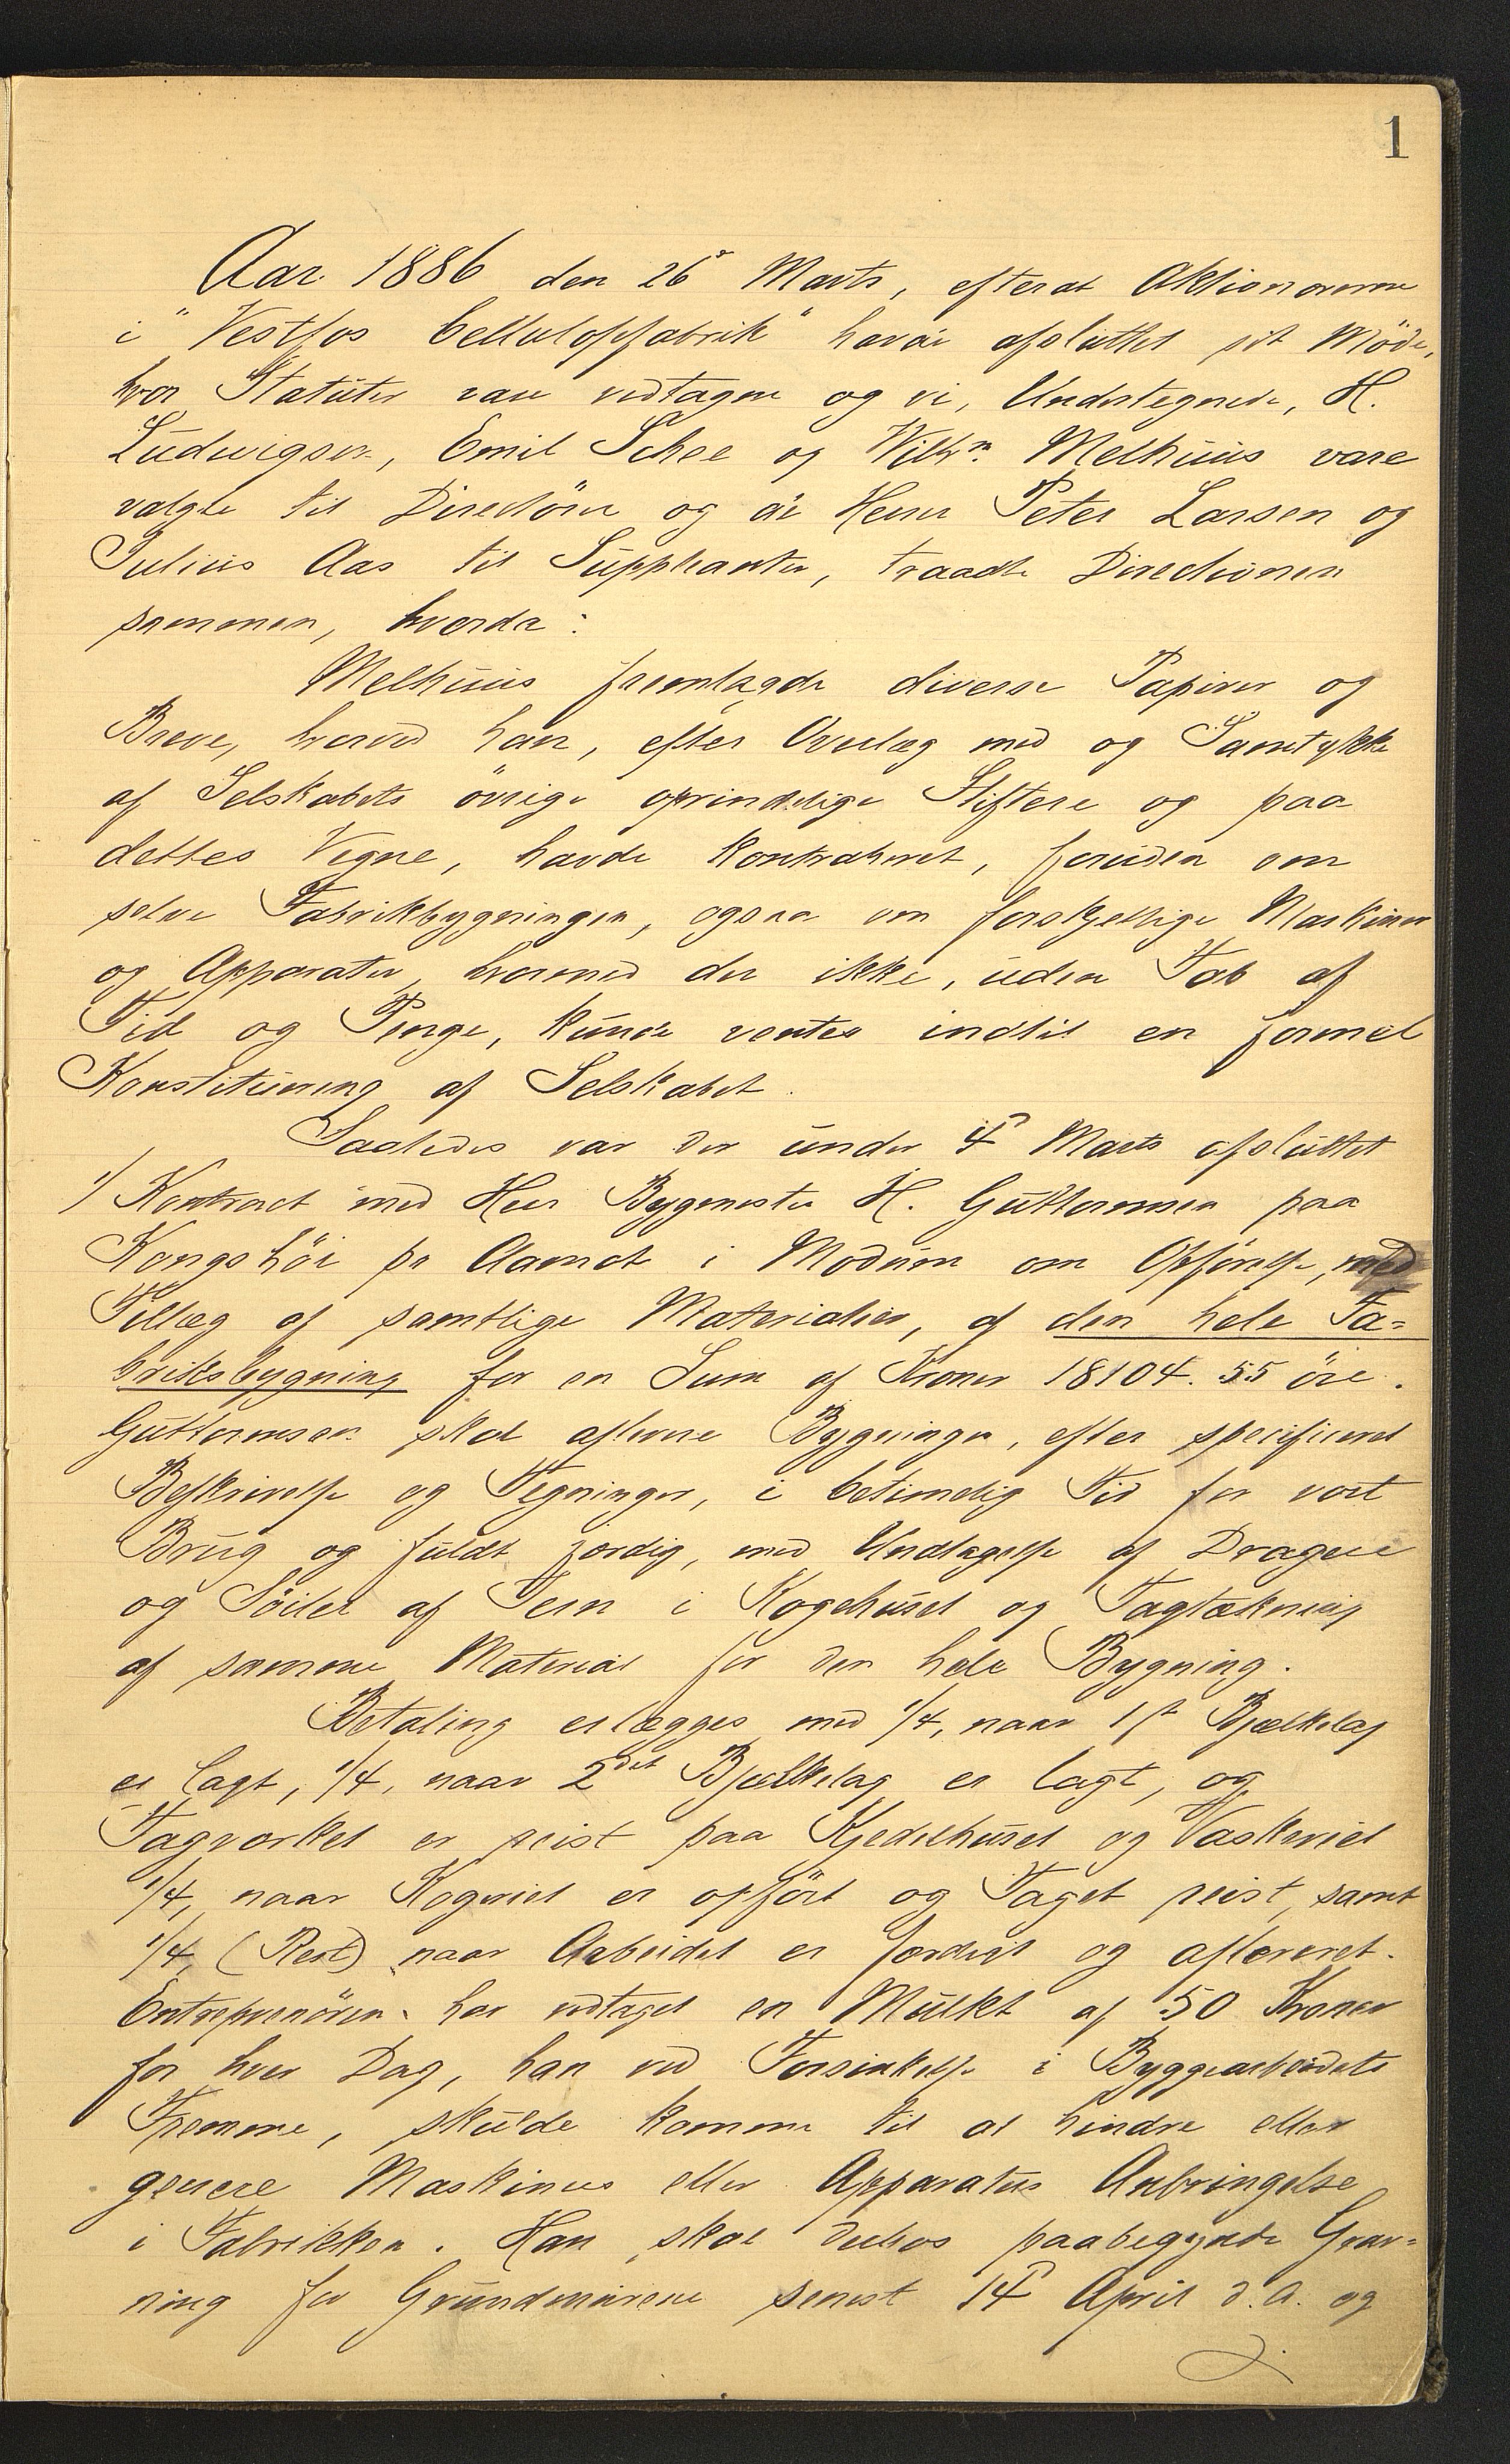 1
Aar 1886 den 26' Marts, efterat Aktionærerne
i "Vestfos Cellulosefabrik" havde afsluttet sit Möde,
hvor Statuter vare vedtagne og vi, Undertegnede, H.
Ludwigsen, Emil Schee og Wilhm. Melhuus vare
valgte til Directörer og de Herrer Peter Larsen og
Julius Aas til Suppleanter, traadte Directionen
sammen, hvorda:
Melhuus fremlagde diverse Papirer og
Breve, hvorved han, efter Overlæg med og Samtykke
af Selskabets övrige oprindelige Stiftere og paa
dettes Vegne, havde kontraheret, foruden om
selve Fabrikbygningen, ogsaa om forskjellige Maskiner
og Apparater, hvormed der ikke, uden Tab af
Tid og Penge, kunde ventes indtil en formel
Konstituering af Selskabet.
Saaledes var der under 4' Marts afsluttet
1/ Kontract med Herr Bygmester H. Guttormsen paa
Kongshöi pr Aamot i Modum om Opförelse, med
Tillæg af samtlige Materialier, af den hele Fa=
briksbygning for en Sum af Kroner 18104. 55 öre.
Guttormsen skal aflevere Bygningen, efter specificeret
Beskrivelse og Tegninger, i betimelig Tid for vort
Brug og fuldt færdig, med Undtagelse af Dragere
og Söiler af Jern i Kogehuset og Tagtækning
af samme Material for den hele Bygning.
Betaling erlægges med 1/4, naar 1ste Bjælkelag
er lagt, 1/4, naar 2det Bjælkelag er lagt, og
Tagverket er reist paa Kjedelhuset og Vaskeriet
1/4, naar Kogeriet er opfört og Taget reist, samt
1/4, (Rest) naar Arbeidet er færdigt og afleveret.
Entreprenören har vedtaget en Mulkt af 50 Kroner
for hver Dag, han ved Forsinkelse i Byggearbeidets
Fremme, skulde komme til at hindre eller
genere Maskiners eller Apparaters Anbringelse
i Fabrikken. Han skal derhos paabegynde Grav=
ning for Grundmurene senest 14' April d.A. og